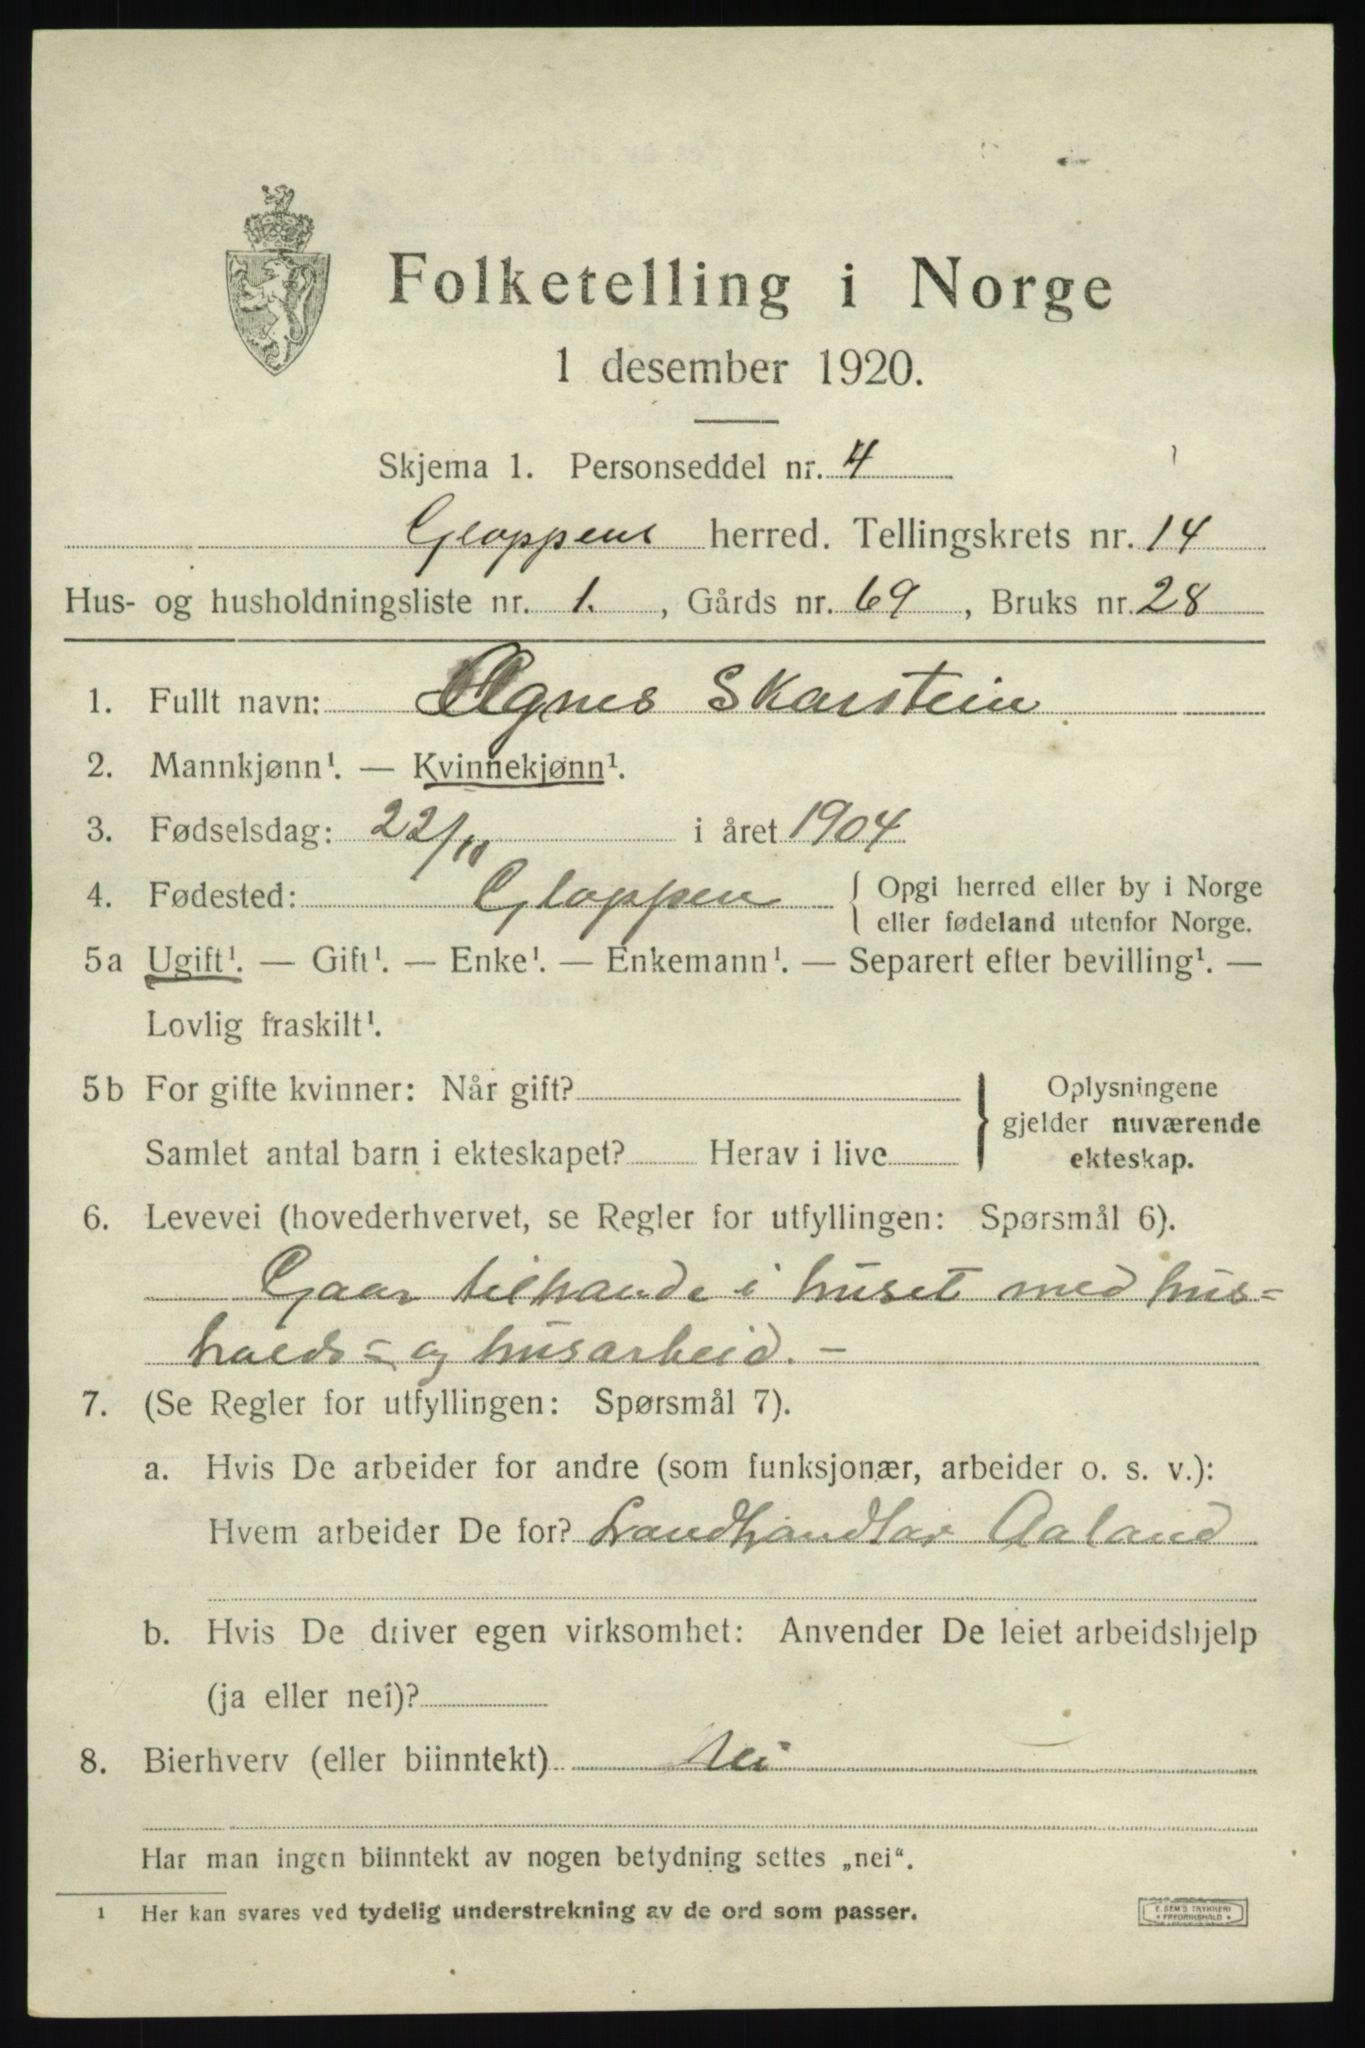 Folketelling i Norge
1 desember 1920.
Skjema 1. Personseddel nr. 4
Gloppens herred. Tellingskrets nr. 14
Hus- og husholdningsliste nr. 1. , Gårds nr. 69 , Bruks nr. 28
1. Fullt navn: Agnes Skarstein
2. Mannkjønn¹. — Kvinnekjønn¹.
3. Fødselsdag: 22/10 i året 1904
4. Fødested: Gloppen { Opgi herred eller by i Norge
eller fødeland utenfor Norge.
5a Ugift¹. — Gift¹. — Enke¹. — Enkemann¹. — Separert efter bevilling¹. —
Lovlig fraskilt¹.
5b For gifte kvinner: Når gift? } Oplysningene
gjelder nuværende
Samlet antal barn i ekteskapet? Herav i live
ekteskap.
6. Levevei (hovederhvervet, se Regler for utfyllingen: Spørsmål 6).
Gaar tilhande i huset med hus=
halds= og husarbeid. —
7. (Se Regler for utfyllingen: Spørsmål 7).
a. Hvis De arbeider for andre (som funksjonær, arbeider o. s. v.):
Hvem arbeider De for? Landhandlar Aaland
b. Hvis De driver egen virksomhet: Anvender De leiet arbeidshjelp
(ja eller nei)?
8. Bierhverv (eller biinntekt) Nei
Har man ingen biinntekt av nogen betydning settes „nei“.
1 Her kan svares ved tydelig understrekning av de ord som passer.
E. SEM'S TRYKKERI
FREDRIKSHALD